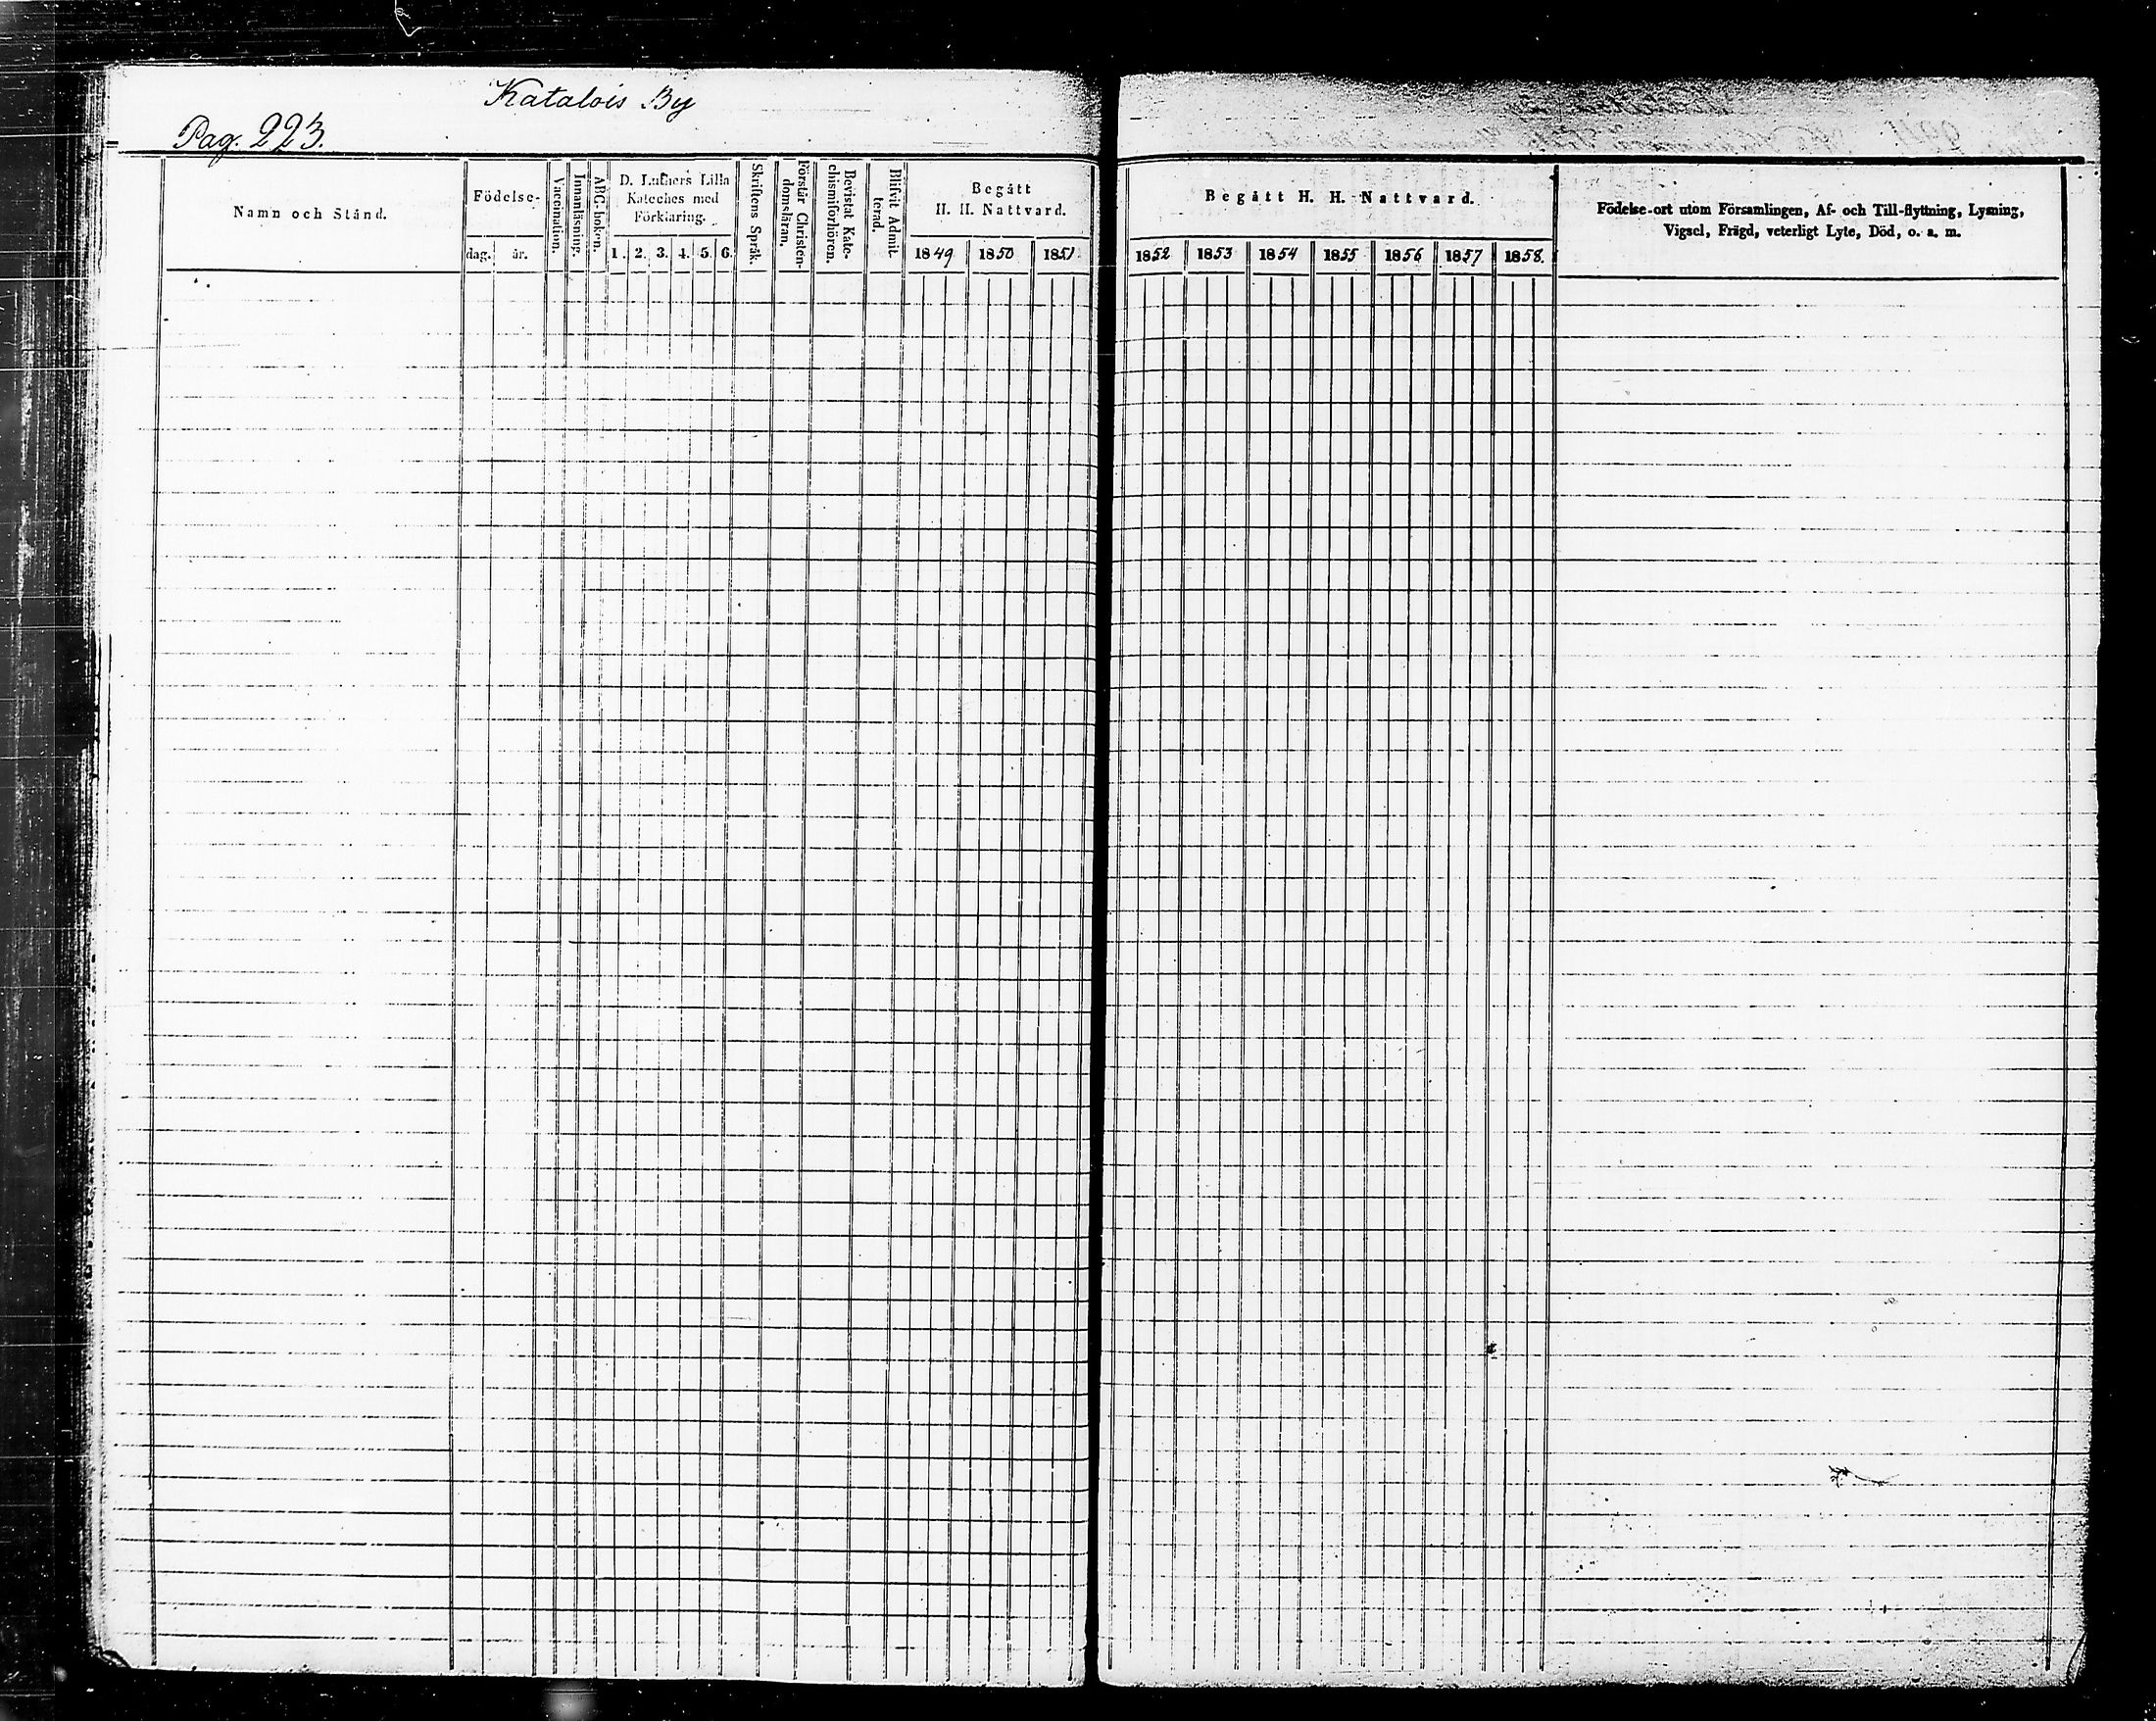 Katalois By
Pag. 223.
Namn och Stånd.
Födelse-
dag. år.
Vaccination.
Innanläsning.
ABC-boken.
D. Luthers Lilla
Kateches med
Förklaring.
1. 2. 3. 4. 5. 6.
Skriftens Språk.
Förstår Christen-
domsläran.
Bevistat Kate-
chismiförhören.
Blifvit Admit-
terad.
Begått
H. H. Nattvard.
1849 1850 1851
Begått H. H. Nattvard.
1852 1853 1854 1855 1856 1857 1858.
Födelse-ort utom Församlingen, Af- och Till-flyttning, Lysning,
Vigsel, Frägd, veterligt Lyte, Död, o. s. m.